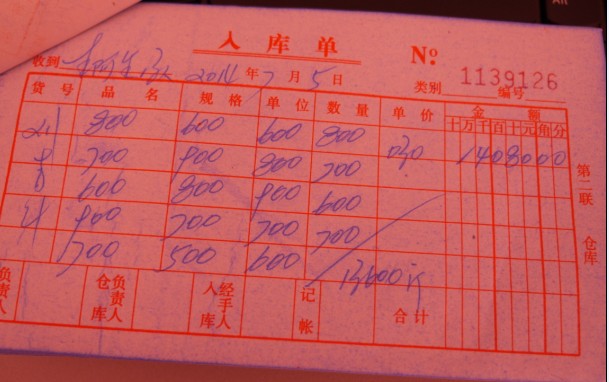 入库单 №
收到 2014年7月5日 类别 1139126 编号
货号 品名 规格 单位 数量 单价 金额
十万千百十元角分
800 600 600 800 1408000
700 900 800 700
600 800 900 600
900 700 700 700
700 500 600 13600
合计
负责人 仓库 负责人 入库 经手人 记帐
第二联 仓库